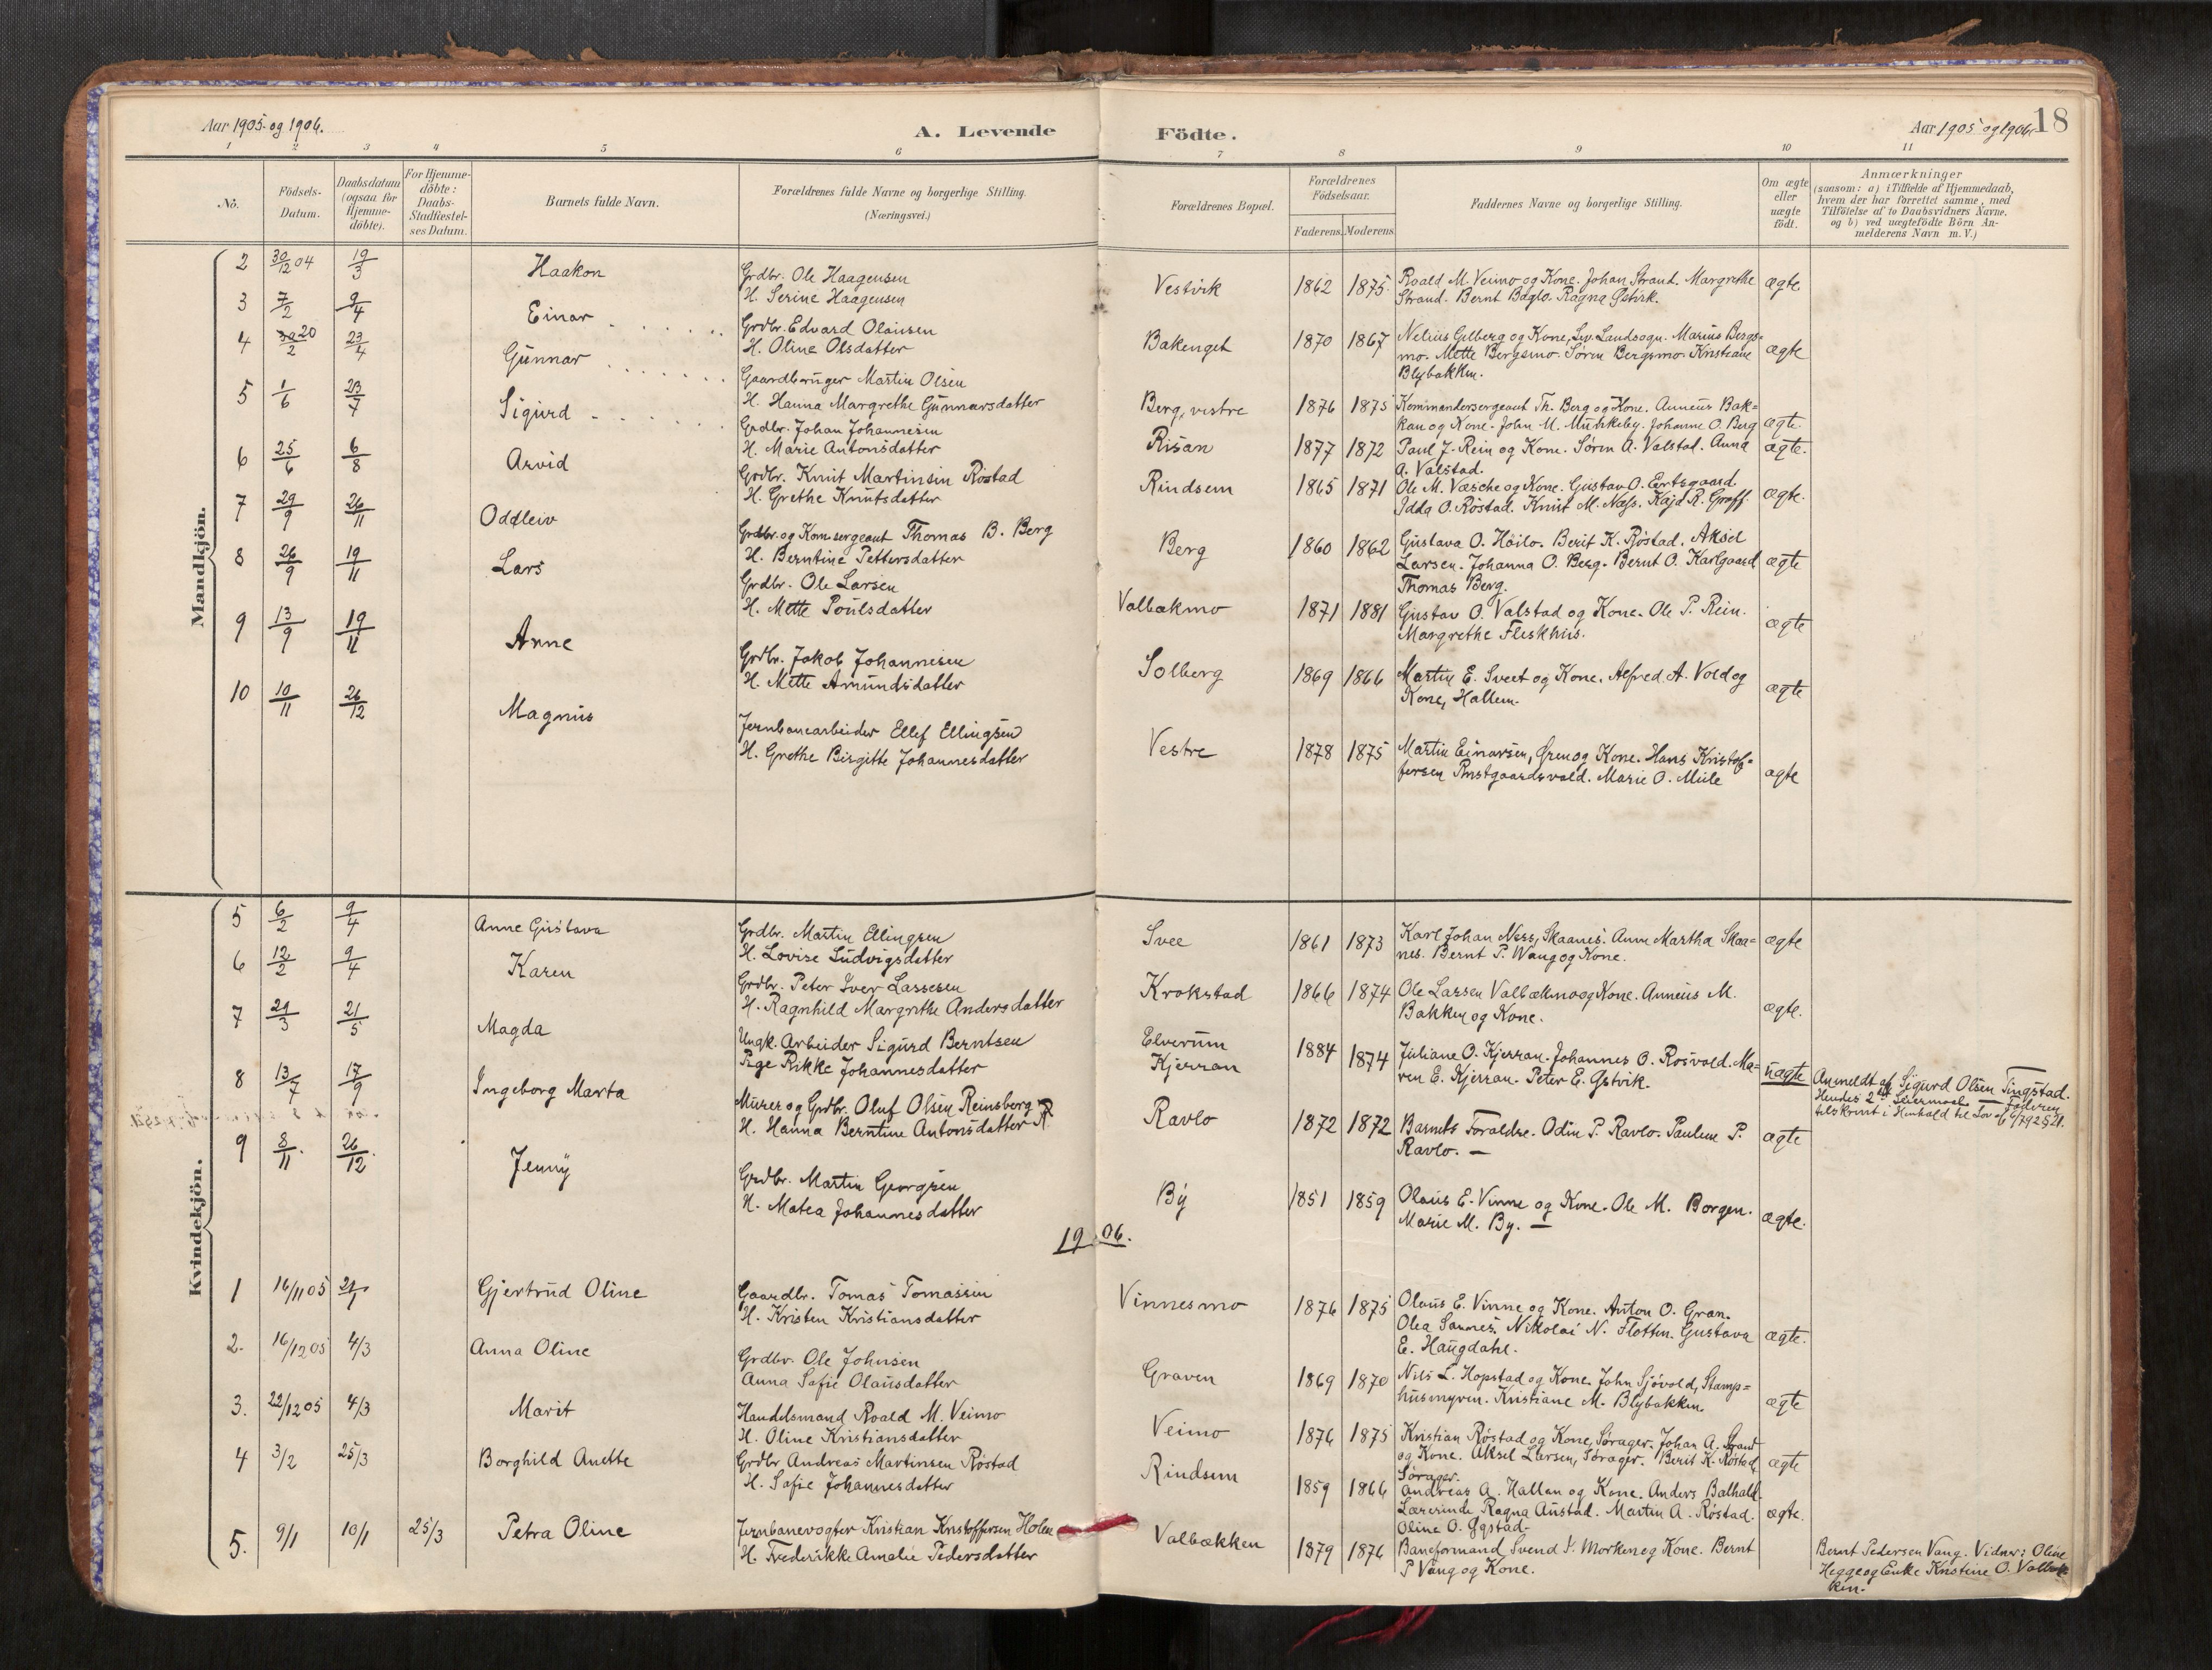 Aar 1905 og 1906.
A. Levende Födte.
Aar 1905 og 1906
18
1 2 3 4 5 6 7 8 9 10 11
No.
Födsels-Datum.
Daabsdatum (ogsaa for Hjemme-döbte).
For Hjemme-döbte: Daabs-Stadfæstel-ses Datum.
Barnets fulde Navn.
Forældrenes fulde Navne og borgerlige Stilling. (Næringsvei.)
Forældrenes Bopæl.
Forældrenes Födselsaar.
Faderens. Moderens.
Faddernes Navne og borgerlige Stilling.
Om ægte eller uægte födt.
Anmærkninger
(saasom: a) i Tilfælde af Hjemmedaab,
hvem der har forrettet samme, med
Tilföielse af to Daabsvidners Navne.
og b) ved uægtefödte Börn An-
melderens Navn m. V.)
Mandkjön.
2 30/12 04 19/3 Haakon
Grdbr. Ole Haagensen
H. Serine Haagensen
Vestvik 1862 1875
Roald M Veimo og Kone. Johan Strand. Margrethe
Strand. Bernt Baglo. Ragna Østvik.
ægte.
3 7/2 9/4 Einar
Grdbr. Edvard Olausen
H. Oline Olsdatter
Bakenget 1870 1867
Nelius Gilberg og Kone, Lev. Landsogn. Marius Bergs=
mo. Mette Bergsmo. Søren Bergsmo. Kristiane
Blybakken.
ægte
4 20/2 23/4 Gunnar
Gaardbruger Martin Olsen
H. Hanna Margrethe Gunnarsdatter
Berg, vestre 1876 1875
Kommandersergeant Th. Berg og Kone. Anneus Bak=
kan og Kone. John M. Munkeby. Johanne O. Berg
ægte.
5 1/6 23/7 Sigurd
Grdbr. Johan Johannesen
H. Marie Antonsdatter
Risan 1877 1872
Paul J. Rein og Kone. Søren A. Valstad. Anna
A. Valstad.
ægte.
6 25/6 6/8 Arvid
Grdbr. Knut Martinsen Røstad
H. Grethe Knutsdatter
Rindsem 1865 1871
Ole M. Væsche og Kone. Gustav O. Eertsgaard
Idda O. Røstad. Knut M. Næss. Kaja R. Graff
ægte.
7 29/9 26/11 Oddleiv
Grdbr. og Komsergeant Thomas B. Berg
H. Berntine Pettersdatter
Berg 1860 1862
Gustava O. Höilo. Berit K. Røstad. Aksel
Larsen. Johanna O. Berg. Bernt O. Karlgaard
Thomas Berg.
ægte
8 26/9 19/11 Lars
Grdbr. Ole Larsen
H. Mette Poulsdatter
Valbækmo 1871 1881
Gustav O. Valstad og Kone. Ole P. Rein.
Margrethe Fleskhus.
ægte
9 13/9 19/11 Arne
Grdbr. Jakob Johannesen
H. Mette Amundsdatter
Solberg 1869 1866
Martin E. Sveet og Kone. Alfred A. Vold og
Kone, Hallem.
ægte
10 10/11 26/12 Magnus
Jernbanearbeider Ellef Ellingsen
H. Grethe Birgitte Johannesdatter
Vestre 1878 1875
Martin Einarsen, Øren og Kone. Hans Kristof=
fersen Prestgaardsvald. Marie O. Mule
ægte
Kvindekjön.
5 6/2 9/4 Anne Gustava
Grdbr. Martin Ellingsen
H. Lovise Ludvigsdatter
Svee 1861 1873
Karl Johan Ness, Skaanes. Anne Martha Skaa=
nes. Bernt P. Wang og Kone.
ægte
6 12/2 9/4 Karen
Grdbr. Peter Iver Lassesen
H. Ragnhild Margrethe Andersdatter
Krokstad 1866 1874
Ole Larsen Valbækmo og Kone. Anneus M.
Bakken og Kone.
ægte.
7 29/3 21/5 Magda
Ungk. Arbeider Sigurd Berntsen
Pige Rikke Johannesdatter
Elverum
Kjerran
1884 1874
Juliane O. Kjerran. Johannes O. Rosvold. Ma=
ren E. Kjerran. Peter E. Østvik.
uægte
Anmeldt af Sigurd Olsen Tingstad.
Hendes 2det Leiermaal. — Faderen
tilskrevet i Henhold til Lov af 6/7 92 § 21.
8 13/7 17/9 Ingeborg Marta
Murer og Grdbr. Oluf Olsen Reinsberg R
H. Hanna Berntine Antonsdatter R.
Ravlo 1872 1872
Barnets Forældre. Odin P. Ravlo. Pauline P.
Ravlo. —
ægte
9 8/11. 26/12. Jenny
Grdbr. Martin Georgsen
H. Matea Johannesdatter
By 1851 1859
Olaus E. Vinne og Kone. Ole M. Borgen.
Marie M. By. —
ægte.
1906.
1 16/11 05 21/1 Gjertrud Oline
Gaardbr. Tomas Tomassen
H. Kristen Kristiansdatter
Vinnesmo 1876 1875
Olaus E. Vinne og Kone. Anton O. Gran.
Olea Sannes. Nikolai N. Flotten. Gustava
E. Haugdahl.
ægte.
2. 16/12 05 4/3 Anna Oline
Grdbr. Ole Johnsen
Anna Sofie Olausdatter
Graven 1869 1870
Nils L. Hopstad og Kone. John Sjövold, Stamp=
husmyren. Kristiane M. Blybakken.
ægte
3. 22/12 05 4/3 Marit
Handelsmand Roald M. Veimo
H. Oline Kristiansdatter
Veimo 1876 1875
Kristian Røstad og Kone, Sørager. Johan A. Strand
og Kone. Aksel Larsen, Sørager. Berit K. Røstad,
Sørager.
ægte
4 3/2 25/3 Borghild Anette
Grdbr Andreas Martinsen Röstad
H. Sofie Johannesdatter
Rindsem 1859 1866
Andreas A. Hallan og Kone. Anders Balhald.
Lærerinde Ragna Austad. Martin A. Røstad.
Oline O. Ggstad.
ægte.
5. 9/1 10/1 25/3 Petra Oline
Jernbanevogter Kristian Kristoffersen Holen
H. Frederikke Amalie Pedersdatter
Valbækken 1879 1876
Baneformand Svend P. Morken og Kone. Bernt
P Vang og Kone.
Bernt Pedersen Vang. Vidner: Oline
Hegge og Enke Kristine O. Valbæk
ken.